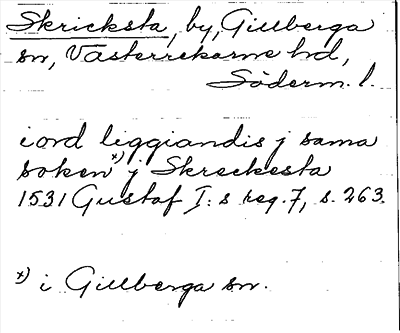 Skricksta, by, Gillberga
sn, Västerrekarne hd,
Söderm. l.
i ord liggiandis j sama
soken x) j Skreckesta
1531 Gustaf I:s reg. 7, s. 263.
x) i Gillberga sn.